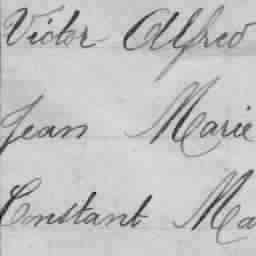 Victor Alfred
Jean Marie
Constant Ma